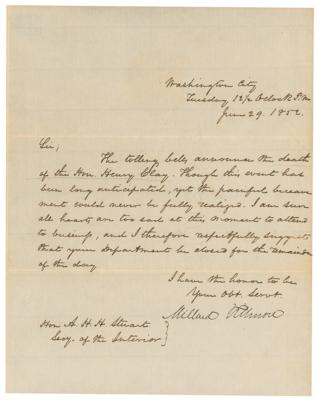 Washington City
Tuesday 12½ O'clock P.M
June 29. 1852.
Sir;
The tolling bells announce the death
of the Hon. Henry Clay. Though this event has
been long anticipated, yet the painful bereave
ment could never be fully realized. I am sure
all hearts are too sad at this moment to attend
to business, and I therefore respectfully suggest
that your Department be closed for the remainder
of the day
I have the honor to be
Your Obt. Servt.
Millard Fillmore
Hon. A. H. H. Stuart
Secy. of the Interior